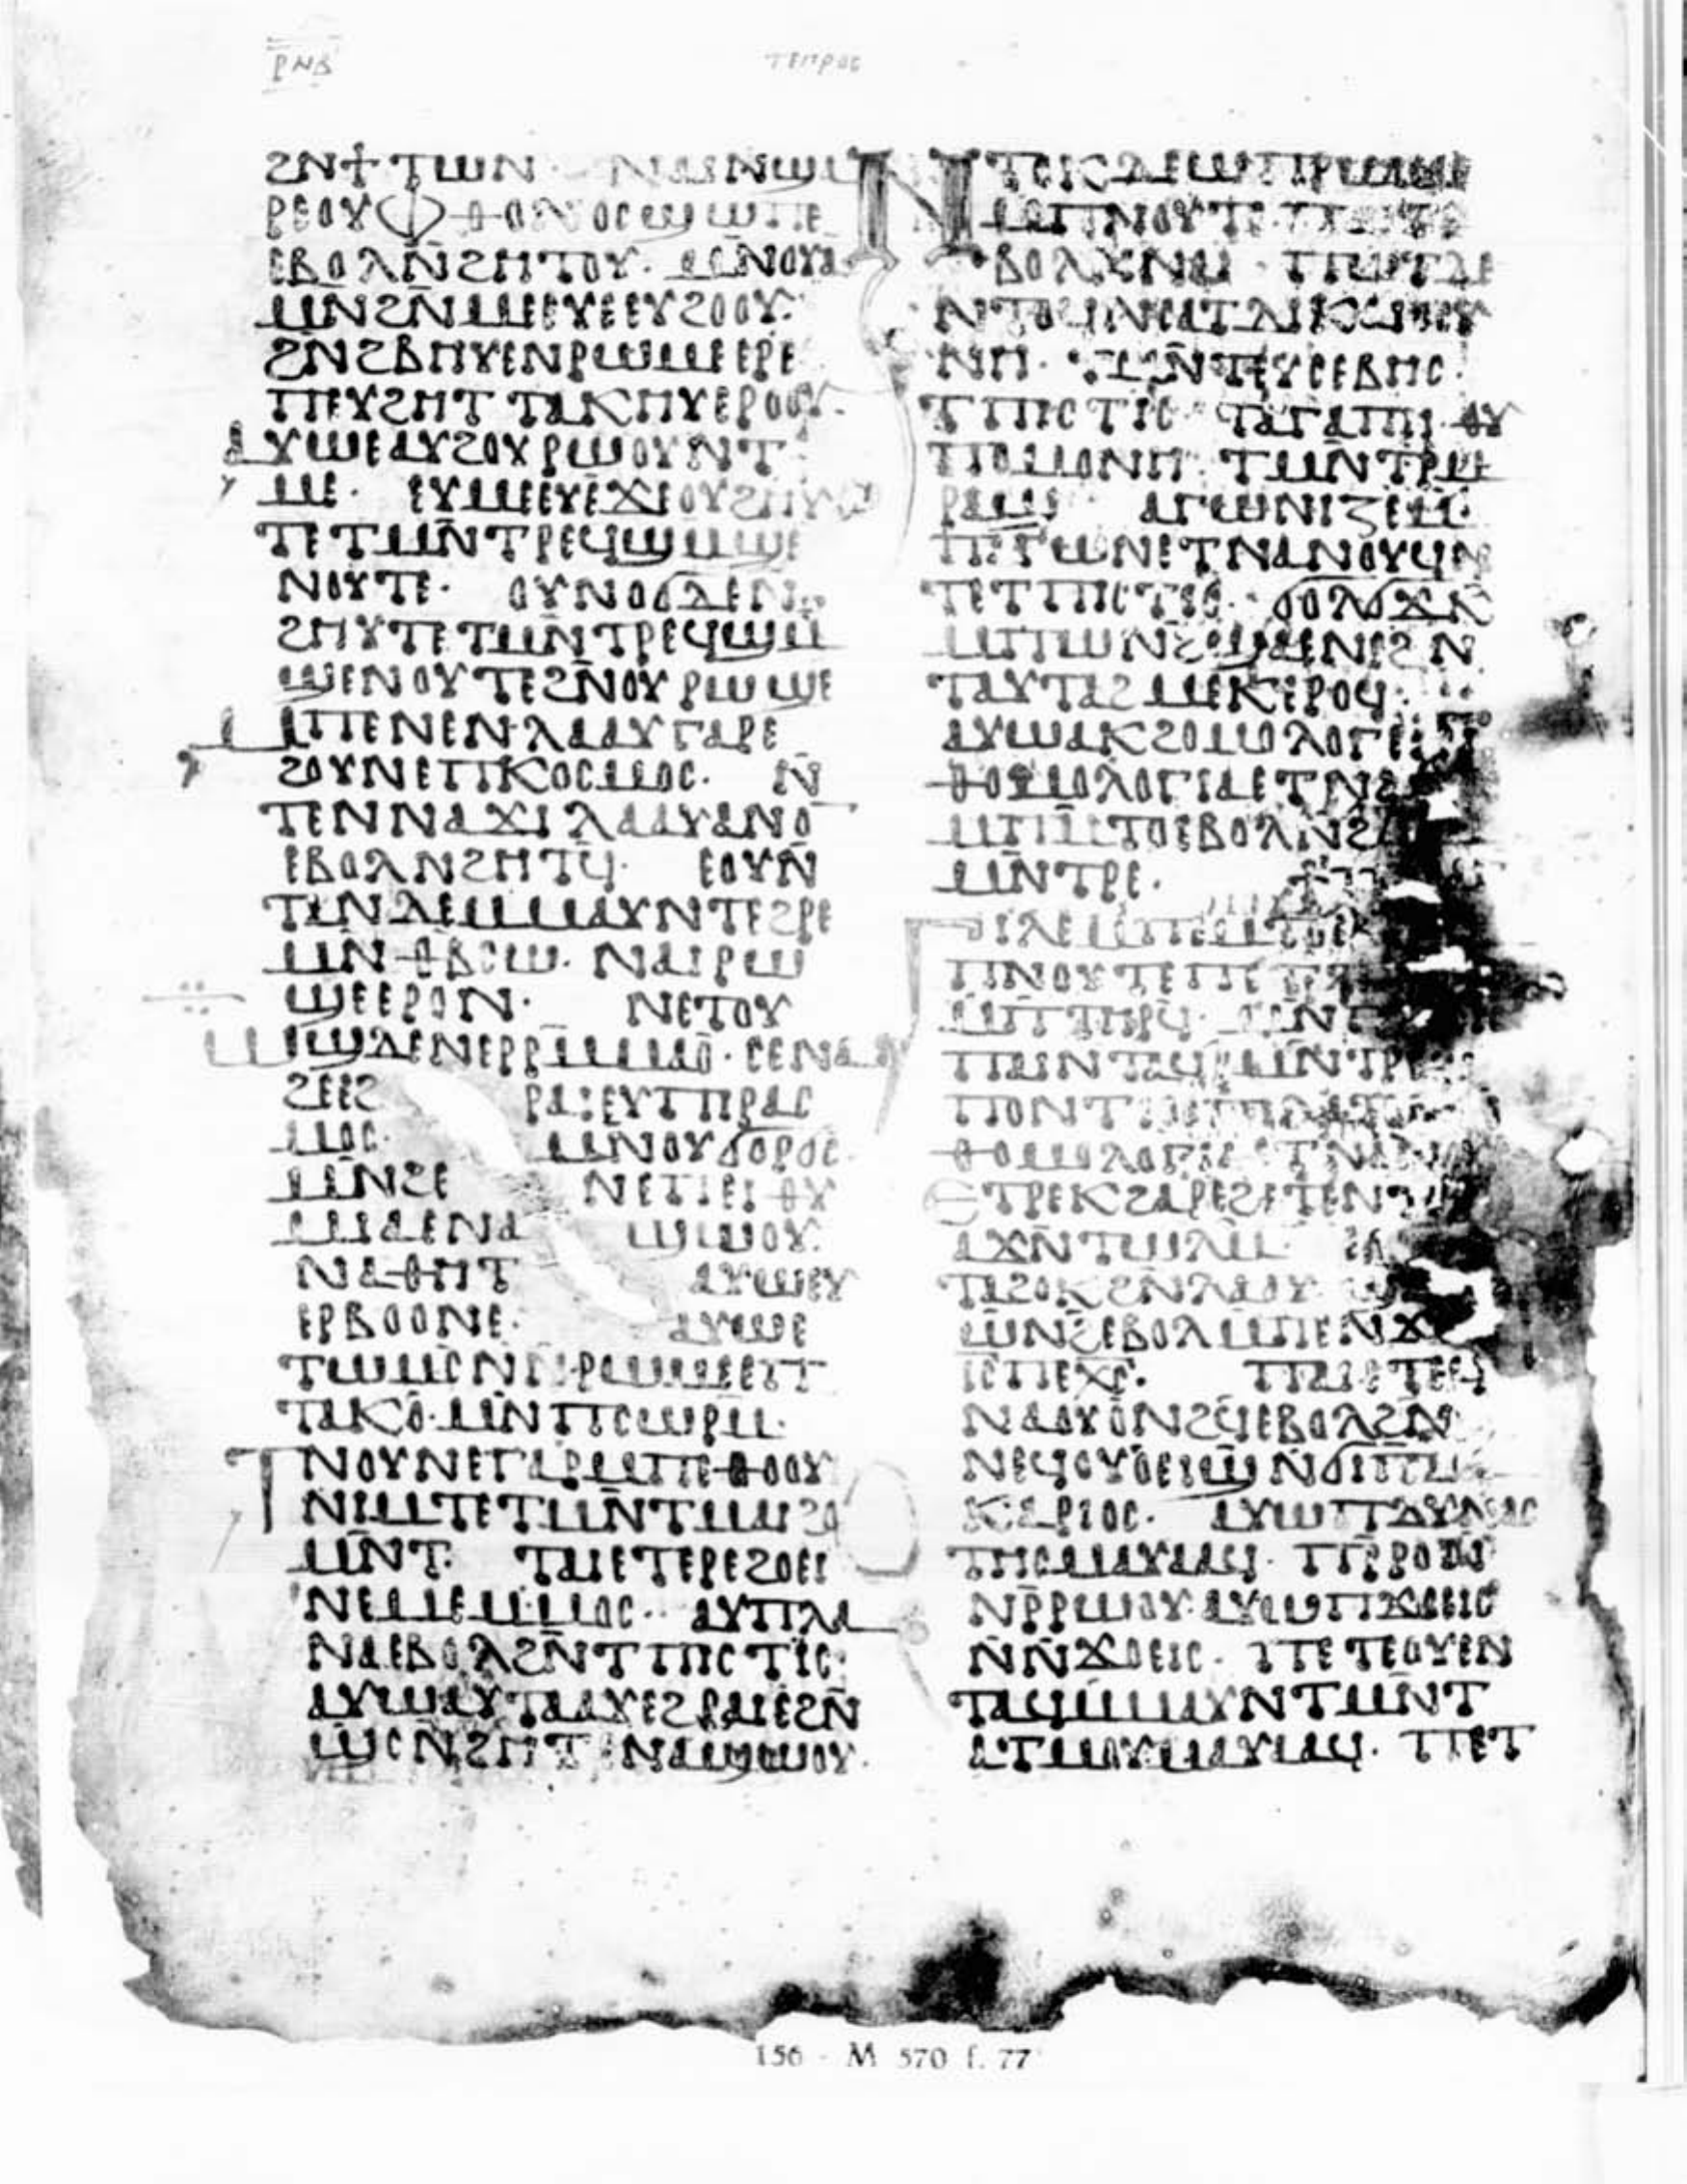 ⲣⲛⲃ
ⲧⲉⲡⲣⲟⲥ
ϩⲛϯⲧⲱⲛ· ⲛⲁⲓⲛϣⲁ
ⲣⲉⲟⲩⲫⲑⲟⲛⲟⲥϣⲱⲡⲉ
ⲉⲃⲟⲗⲛ̄ϩⲏⲧⲟⲩ· ⲙⲛ̄ⲟⲩⲁ
ⲙⲛ̄ϩⲛ̄ⲙⲉⲉⲩⲉⲉⲩϩⲟⲟⲩ·
ϩⲛϩⲃⲏⲩⲉⲛⲣⲱⲙⲉⲉⲣⲉ
ⲡⲉⲩϩⲏⲧ ⲧⲁⲕⲏⲩⲉⲣⲟⲟⲩ·
ⲁⲩⲱⲉⲁⲩϩⲟⲩⲣⲱⲟⲩⲛⲧ
ⲙⲉ· ⲉⲩⲙⲉⲉⲩⲉϫⲉⲟⲩϩⲏⲩ
ⲧⲉⲧⲙⲛ̄ⲧⲣⲉϥϣⲙ̄ϣⲉ
ⲛⲟⲩⲧⲉ· ⲟⲩⲛⲟϭⲇⲉⲛ
ϩⲏⲩⲧⲉⲧⲙⲛ̄ⲧⲣⲉϥϣⲙ̄
ϣⲉⲛⲟⲩⲧⲉϩⲛ̄ⲟⲩⲣⲱϣⲉ
ⲙⲡⲉⲛⲉⲛⲗⲁⲁⲩⲅⲁⲣⲉ
ϩⲟⲩⲛⲉⲡⲕⲟⲥⲙⲟⲥ· ⲛ̄
ⲧⲉⲛⲛⲁϫⲓⲗⲁⲁⲩⲁⲛⲟ
ⲉⲃⲟⲗⲛϩⲏⲧϥ̄· ⲉⲟⲩⲛ̄
ⲧⲁⲛⲇⲉⲙⲙⲁⲩⲛⲧⲉϩⲣⲉ
ⲙⲛ̄ⲑⲃⲥⲱ· ⲛⲁⲓⲣⲱ
ϣⲉⲉⲣⲟⲛ· ⲛⲉⲧⲟⲩ
ⲱϣⲇⲉⲛⲉⲣⲣⲙ̄ⲙⲁⲟ· ⲥⲉⲛⲁ
ϩⲉⲉϩ ⲣⲁⲓⲉⲩⲡⲓⲣⲁⲥ
ⲙⲟⲥ· ⲙⲛⲟⲩϭⲟⲣϭⲥ·
ⲙⲛ̄ϩⲉ ⲛⲉⲡⲓⲉⲓ ⲑⲩ
ⲙⲓⲁⲉⲛⲁ ϣⲱⲟⲩ·
ⲛⲁⲑⲏⲧ ⲁⲩⲱⲉⲩ
ⲉⲣⲃⲟⲟⲛⲉ· ⲁⲩⲱⲉ
ⲧⲱⲙⲥⲛⲛⲣⲱⲙⲉⲉⲡ
ⲧⲁⲕⲟ· ⲙⲛ̄ⲡⲥⲱⲣⲙ̄·
ⲧⲛⲟⲩⲛⲉⲅⲁⲣⲙ̄ⲡⲉⲑⲟⲟⲩ
ⲛⲓⲙⲧⲉⲧⲙⲛ̄ⲧⲙⲁⲓϩⲟ
ⲙⲛ̄ⲧ· ⲧⲁⲓⲉⲧⲉⲣⲉϩⲟⲉⲓ
ⲛⲉⲙⲉⲙ̄ⲙⲟⲥ· ⲁⲩⲡⲗⲁ
ⲛⲁⲉⲃⲟⲗϩⲛ̄ⲧⲡⲓⲥⲧⲓⲥ·
ⲁⲩⲱⲁⲩⲧⲁⲁⲩⲉϩⲣⲁⲓⲉϩⲛ̄
ⲙⲟⲕⲛ̄ϩⲏⲧⲉⲛⲁϣⲱⲟⲩ·
ⲛⲧⲟⲕⲇⲉⲱⲡⲣⲱⲙⲉ
ⲙ̄ⲡⲛⲟⲩⲧⲉ·
ⲃⲟⲗϩⲛⲛⲁⲓ· ⲡⲱⲧⲇⲉ
ⲛⲧⲟϥⲛⲥⲁⲧⲇⲓⲕⲁⲓⲟⲥⲩ
ⲛⲏ· ⲧⲙⲛ̄ⲧⲉⲩⲥⲉⲃⲏⲥ·
ⲧⲡⲓⲥⲧⲓⲥ· ⲧⲁⲅⲁⲡⲏ· ⲑⲩ
ⲡⲟⲙⲟⲛⲏ· ⲧⲙⲛ̄ⲧⲣⲙ
ⲣⲁϣ· ⲁⲅⲱⲛⲓⲍⲉⲙ̄
ⲡⲁⲅⲱⲛⲉⲧⲛⲁⲛⲟⲩϥⲛ
ⲧⲉⲧⲡⲓⲥⲧⲓⲥ· ϭⲟⲗϭⲕ̄
ⲙⲡⲱⲛϩ̄ϣⲁⲉⲛⲉϩ ⲛ
ⲧⲁⲩⲧⲁϩⲙⲉⲕⲉⲣⲟϥ·
ⲁⲩⲱⲁⲕϩⲟⲙⲟⲗⲟⲅⲉⲓ
ⲑⲟⲙⲟⲗⲟⲅⲓⲁⲉⲧⲛⲁ
ⲙⲡⲙ̄ⲧⲟⲉⲃⲟⲗⲛϩⲁ
ⲙⲛ̄ⲧⲣⲉ·
ⲡⲛⲟⲩⲧⲉⲡⲉⲧ
ⲙⲡⲧⲏⲣϥ̄· ⲙⲛ̄
ⲡⲁⲓⲛⲧⲁϥⲣ̄ⲙⲛ̄ⲧⲣⲉ
ⲡⲟⲛⲧⲓⲟⲥⲡⲓⲗⲁⲧⲟⲥ
ⲑⲟⲙⲟⲗⲟⲅⲓⲁⲉⲧⲛⲁⲛⲟⲩ
ⲉⲧⲣⲉⲕϩⲁⲣⲉϩⲉⲧⲉⲛⲧ
ⲁϫⲛ̄ⲧⲱⲗⲙ̄·
ⲧⲁϩⲟⲕϩⲛ̄ⲗⲁⲁⲩ·
ⲱⲛϩ̄ⲉⲃⲟⲗⲙ̄ⲡⲉⲛϫ
ⲓ̄ⲥ̄ⲡⲉⲭ̄ⲥ̄· ⲡⲁⲓⲉⲧⲉϥ
ⲛⲁⲟⲩⲟⲛϩϥ̄ⲉⲃⲟⲗϩⲛ
ⲛⲉϥⲟⲩⲟⲉⲓϣⲛ̄ϭⲓⲡⲙⲁ
ⲕⲁⲣⲓⲟⲥ· ⲁⲩⲱⲡⲇⲩⲛⲁⲥ
ⲧⲏⲥⲙⲁⲩⲁⲁϥ· ⲡⲣ̄ⲣⲟ
ⲛⲣ̄ⲣⲱⲟⲩ· ⲁⲩⲱⲡϫⲟⲉⲓⲥ
ⲛ̄ⲛ̄ϫⲟⲉⲓⲥ· ⲡⲉⲧⲉⲟⲩⲉⲛ
ⲧⲁϥⲙ̄ⲙⲁⲩⲛⲧⲙⲛ̄ⲧ
ⲁⲧⲙⲟⲩⲙⲁⲩⲁⲁϥ· ⲡⲉⲧ
156 - M 570 f. 77ᵛ